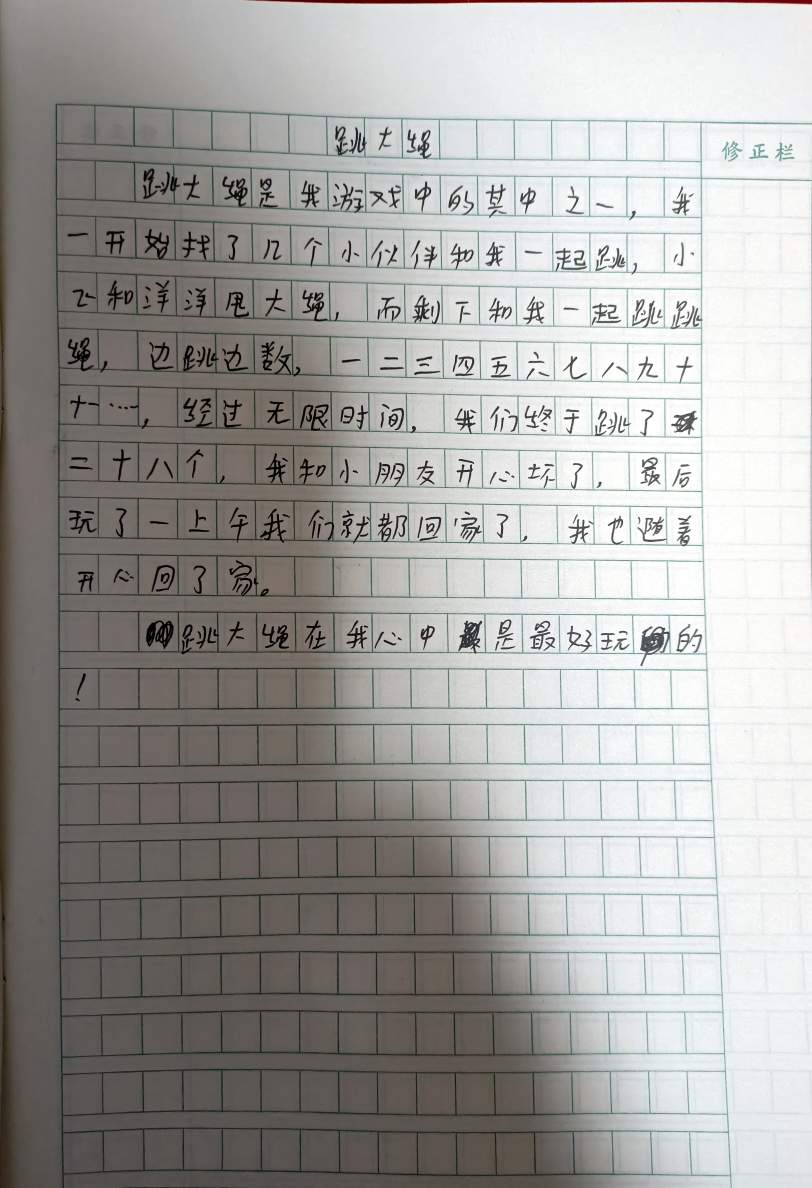 跳大绳
修正栏
跳大绳是我游戏中的其中之一，我
一开始找了几个小伙伴和我一起跳，小
飞和洋洋甩大绳，而剩下和我一起跳跳
绳，边跳边数，一二三四五六七八九十
十一……，经过无限时间，我们终于跳了
二十八个，我和小朋友开心坏了，最后
玩了一上午我们就都回家了，我也随着
开心回了家。
跳大绳在我心中是最好玩的
！